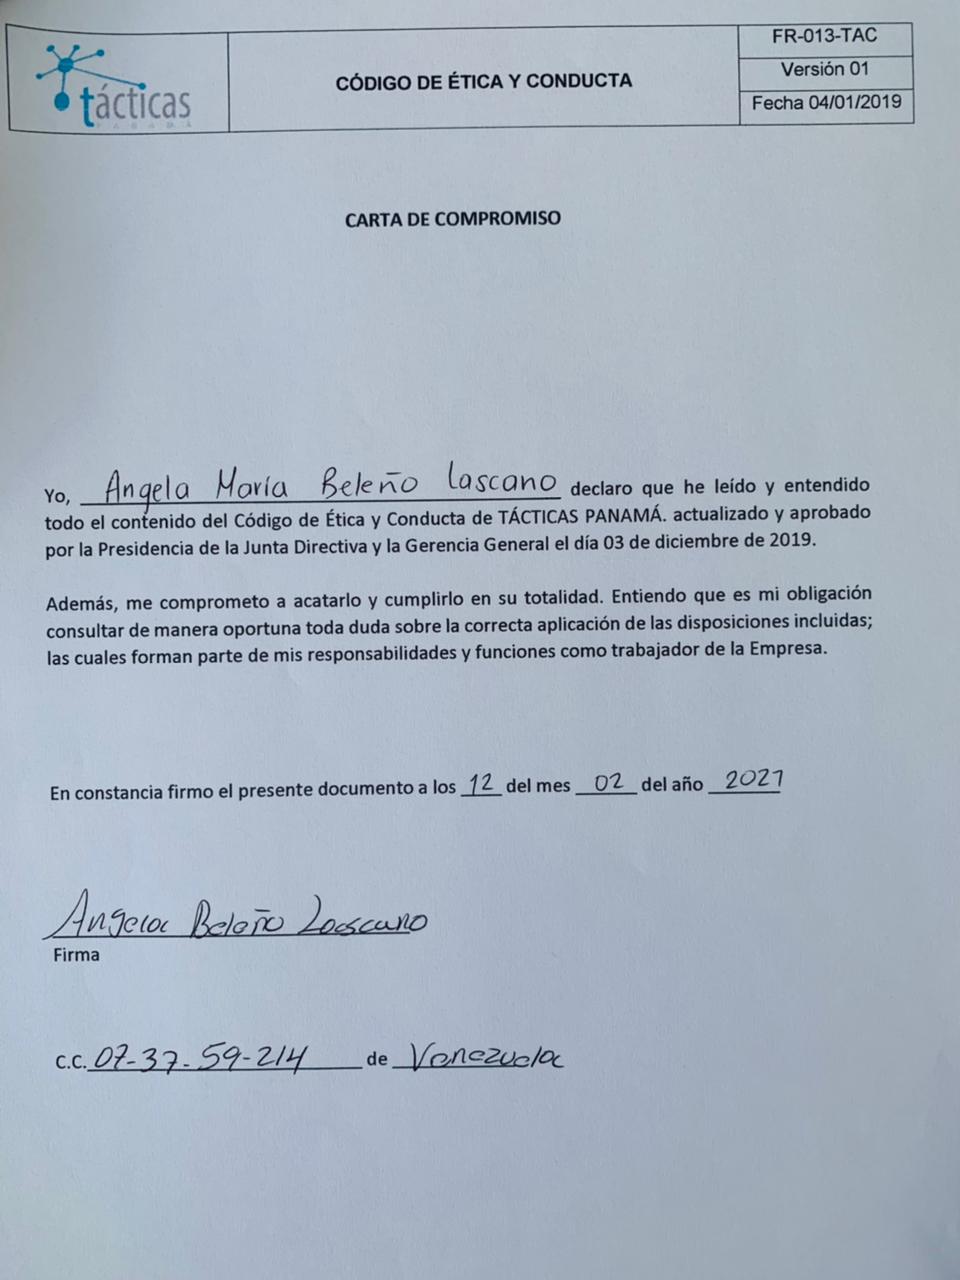 tácticas
PANAMÁ
CÓDIGO DE ÉTICA Y CONDUCTA
FR-013-TAC
Versión 01
Fecha 04/01/2019
CARTA DE COMPROMISO
Yo, Angela María Beleño Lascano declaro que he leído y entendido
todo el contenido del Código de Ética y Conducta de TÁCTICAS PANAMÁ. actualizado y aprobado
por la Presidencia de la Junta Directiva y la Gerencia General el día 03 de diciembre de 2019.
Además, me comprometo a acatarlo y cumplirlo en su totalidad. Entiendo que es mi obligación
consultar de manera oportuna toda duda sobre la correcta aplicación de las disposiciones incluidas;
las cuales forman parte de mis responsabilidades y funciones como trabajador de la Empresa.
En constancia firmo el presente documento a los 12 del mes 02 del año 2021
Angela Beleño Lascano
Firma
C.C. 07-37-59-214 de Venezuela